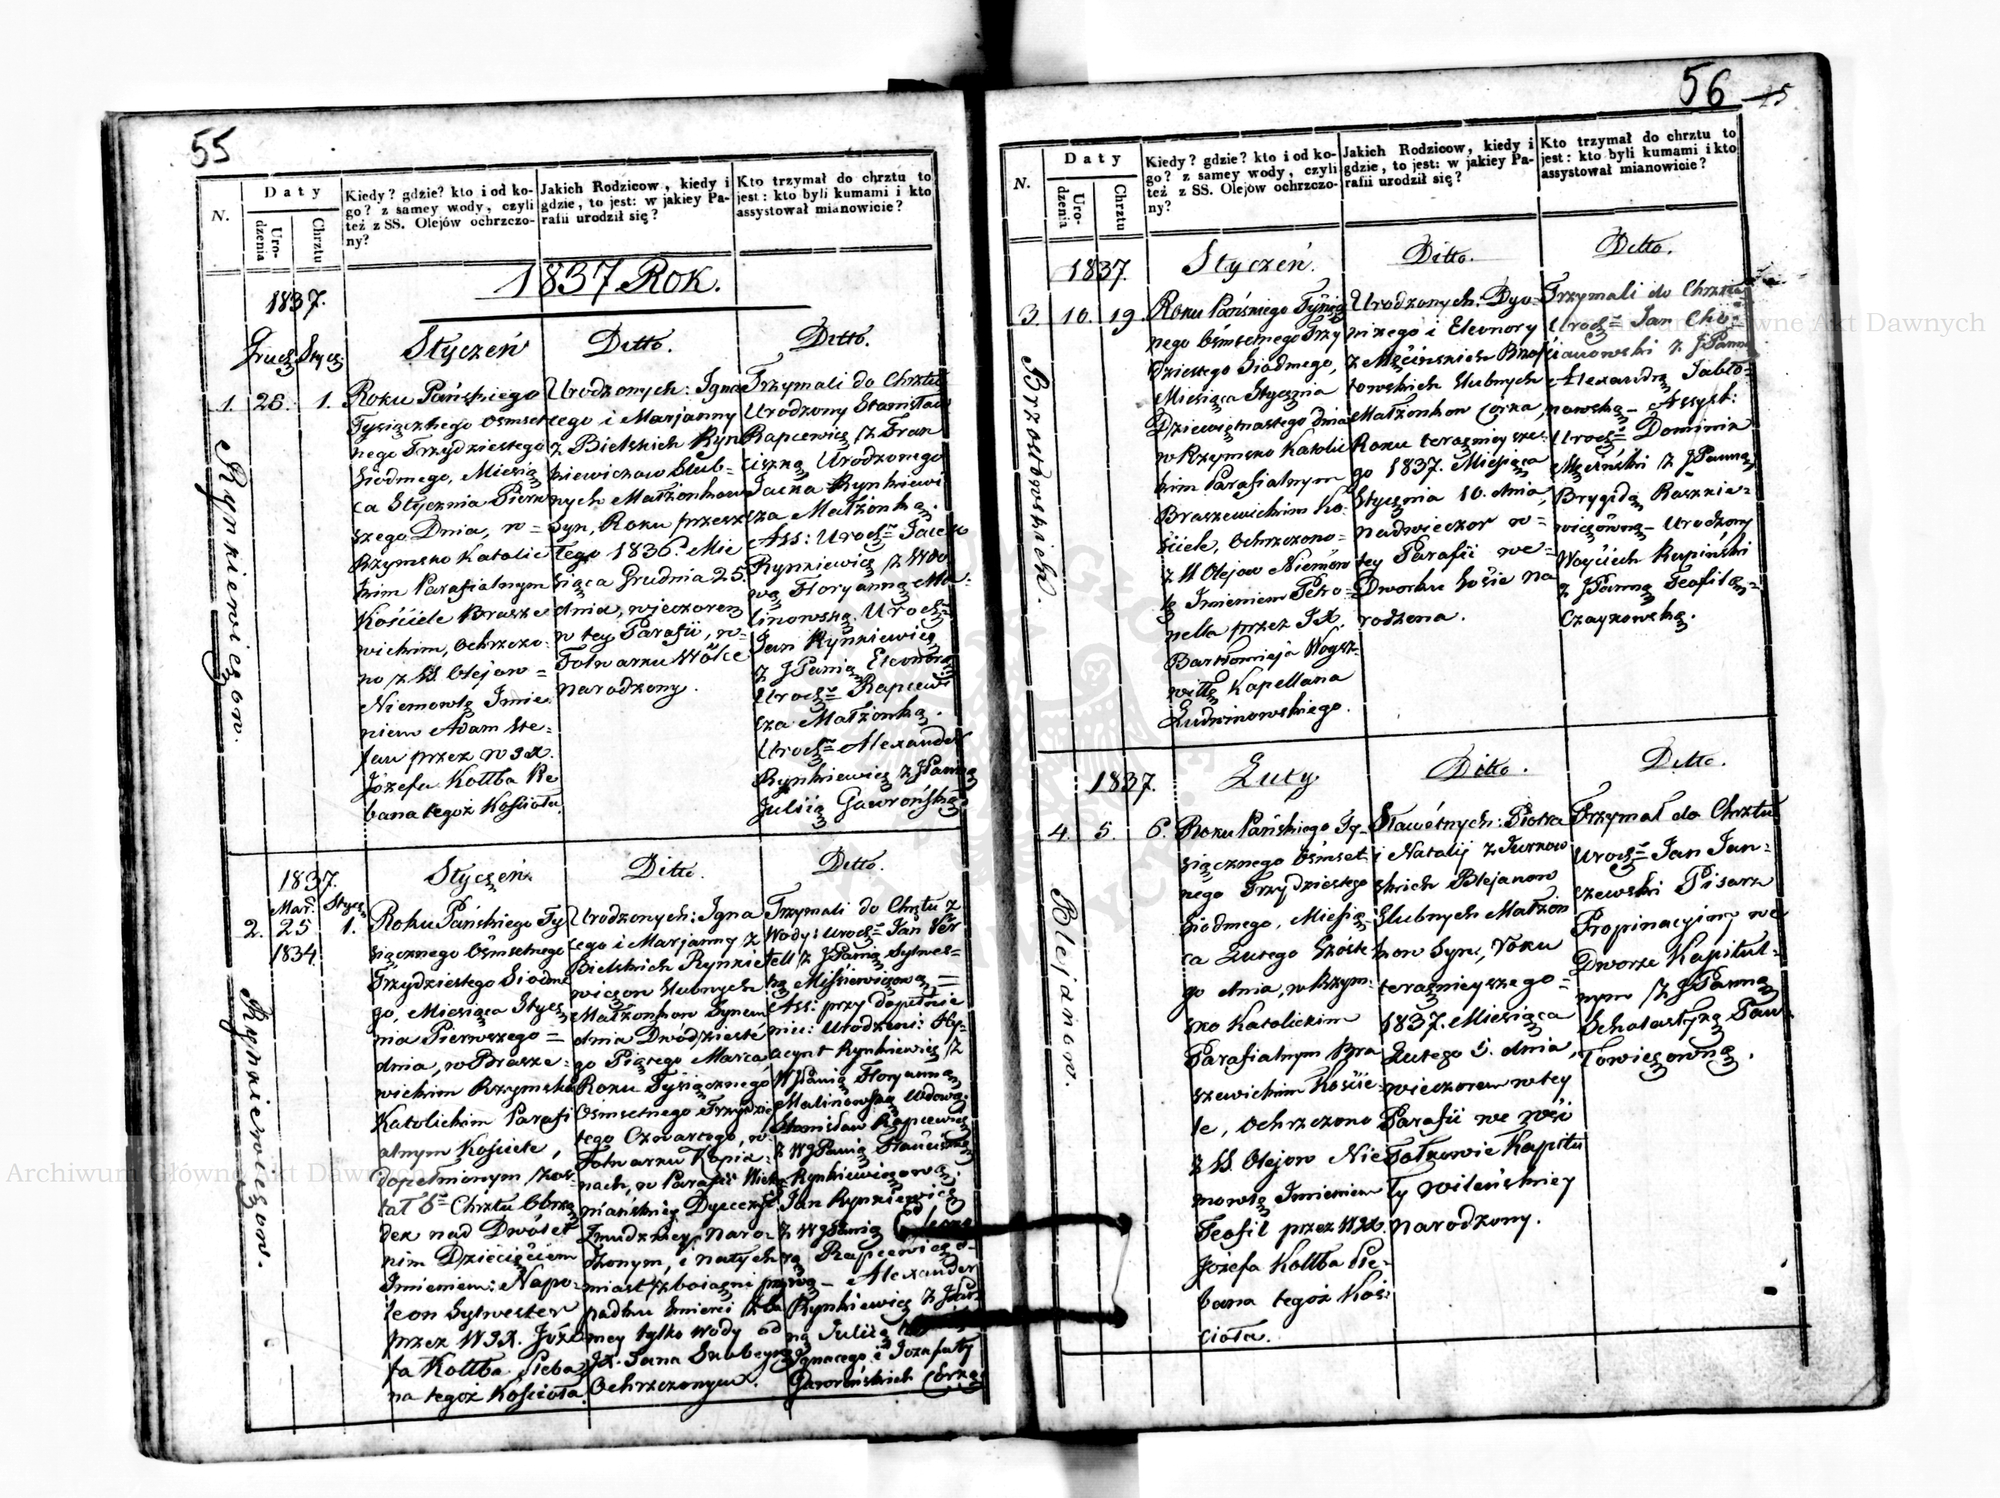 55
N.
Daty
Urodzenia
Chrztu
Kiedy? gdzie? kto i od ko-
go? z samey wody, czyli
też z SS. Olejów ochrzczo-
ny?
Jakich Rodzicow, kiedy i
gdzie, to jest: w jakiey Pa-
rafii urodził się?
Kto trzymał do chrztu to
jest: kto byli kumami i kto
assystował mianowicie?
1837 Rok.
1837.
Grud. Stycz.
Styczeń
Ditto.
Ditto.
1. 26. 1.
Rynkiewiczow.
Roku Pańskiego
Tysiącznego Ośmset
nego Trzydziestego
Siodmego, Miesią
ca Stycznia Pierw
szego Dnia, w =
Rzymsko Katolic
kim Parafialnym
Kościele Brasze
wickim, ochrzczo-
no, z SS. Olejow =
Niemowlę Imie
niem Adam Ste-
fan przez WJX.
Józefa Kollba Ple
bana tegoż Kościoła.
Urodzonych: Igna
cego i Marjanny
z Bielskich Ryn
kiewiczow Slub-
nych Małżonkow
Syn, Roku przesz
łego 1836. Mie
siąca Grudnia 25.
dnia, wieczorem
w tey Parafii, w-
Folwarku Wólce
narodzony.
Trzymali do Chrztu
Urodzony Stanisław
Rapcewicz z Fran
ciszką Urodzonego
Jacka Rynkiewi
cza Małżonką.
Ass: Urodz. Jacek
Rynkiewicz z Wdo
wą Floryanną Ma-
linowską. Urodz.
Jan Rynkiewicz
z JPanią Eleonorą
Urodz. Rapcewi
cza Małżonką.
Urodz. Alexander
Rynkiewicz z JPanną
Julią Gawrońską.
1837.
Mar. Stycz.
Styczeń.
Ditto.
Ditto.
2. 25 1.
1834
Rynkiewiczow.
Roku Pańskiego Ty
siącznego Ośmsetnego
Trzydziestego Siodme
go, Miesiąca Stycz
nia Pierwszego =
dnia, w Brasze-
wickim Rzymsko
Katolickim Parafi
alnym Kościele,
dopełnionym zos
tał Chrztu Obrzą
dek nad Dwólet
nim Dziecięciem
Imieniem: Napo-
leon Sylwester
przez WJX. Józe
fa Kollba, Pleba
na tegoż Kościoła.
Urodzonych: Igna
cego i Marjanny z
Bielskich Rynkie
wiczow Slubnych
Małżonkow Synem
dnia Dwódzieste
go Piątego Marca
Roku Tysiącznego
Ośmsetnego Trzydzies
tego Czwartego, w
Folwarku
nach, w Parafii
Dyecezyi
Żmudzkiey, naro-
dzonym, i natych
miast z boiazni przy
padku śmierci z Sa
mey tylko Wody od
JX. Jana
Ochrzczonym.
Trzymali do Chrztu z
Wody: Urodz. Jan
z JPanną Sylwes-
=
Ass: przy dopełnie
niu: Urodzeni: Hy-
acynt Rynkiewicz z
WJPanią Floryanną
Malinowską Wdową.
Stanisław Rapcewicz
z WJPanią Franciszką
Rynkiewiczową.
Jan Rynkiewicz
z WJPanią
Rapcewiczo-
wą - Alexander
Rynkiewicz z JPan
ną Julią
Ignacego i Jozefaty
Gawrońskich Córką.
56
N.
Daty
Urodzenia
Chrztu
Kiedy? gdzie? kto i od ko-
go? z samey wody, czyli
też z SS. Olejów ochrzczo-
ny?
Jakich Rodzicow, kiedy i
gdzie, to jest: w jakiey Pa-
rafii urodził się?
Kto trzymał do chrztu to
jest: kto byli kumami i kto
assystował mianowicie?
1837.
Styczeń.
Ditto.
Ditto.
3. 10. 19.
Brzostowskich.
Roku Pańskiego Tysiącz
nego Ośmsetnego Trzy
dziestego Siodmego,
Miesiąca Stycznia
Dziewiętnastego dnia
w Rzymsko Katolic
kim Parafialnym
Braszewickim Ko-
ściele, Ochrzczono-
z SS Olejow Niemow
lę Imieniem Petro-
nella przez JX.
Bartłomieja
Kapellana
Ludwinowskiego.
Urodzonych: Dyo-
nizego i Eleonory
z Męcinskich Brzos
towskich Slubnych
Małżonkow Corka,
Roku teraznieysze-
go 1837. Miesiąca
Stycznia 10. dnia,
nadwieczor w =
tey Parafii we =
Dworku Łosie na
rodzona.
Trzymali do Chrztu
Urodz. Jan
z JPanną
Alexandrą Jabło-
nowską - Assyst:
Urodz. Dominik
Męciński z JPanną
Brygidą Raszkie-
wiczówną - Urodzony
Woyciech Rupiński
z JPanną Teofilą =
Czaykowską.
1837.
Luty
Ditto.
Ditto.
4. 5. 6.
Blejanow.
Roku Pańskiego Ty-
siącznego Ośmset-
nego Trzydziestego
Siodmego, Miesią-
ca Lutego Szóste
go dnia, w Rzym-
sko Katolickim
Parafialnym Bra
szewickim Koście-
le, Ochrzczono
z SS Olejow Nie
mowlę Imieniem
Teofil przez WJX.
Józefa Kollba Ple-
bana tegoż Koś-
cioła.
Sławetnych: Piotra
i Natalij z Jurkow
skich Blejanow
Slubnych Małżon
kow Syn, roku
teraznieyszego =
1837. Miesiąca
Lutego 5. dnia,
wieczorem w tey
Parafii we wsi
Fołkowie Kapitu
ły Wileńskiey
narodzony.
Trzymał do Chrztu
Urodz. Jan Jan-
szewski Pisarz
Propinacyiny we
Dworze Kapitul-
nym z JPanną
Scholastyką Paw
łowiczówną.
Archiwum Główne Akt Dawnych
Archiwum Główne Akt Dawnych